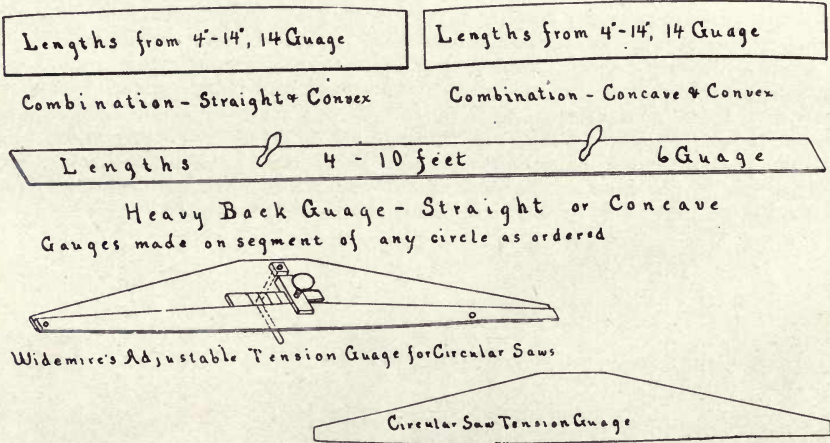 Lengths from 4"-14", 14 Guage
Lengths from 4"-14", 14 Guage
Combination - Straight & Convex
Combination - Concave & Convex
Lengths 4 - 10 feet 6 Guage
Heavy Back Guage - Straight or Concave
Gauges made on segment of any circle as ordered
Widemire's Adjustable Tension Guage for Circular Saws
Circular Saw Tension Guage